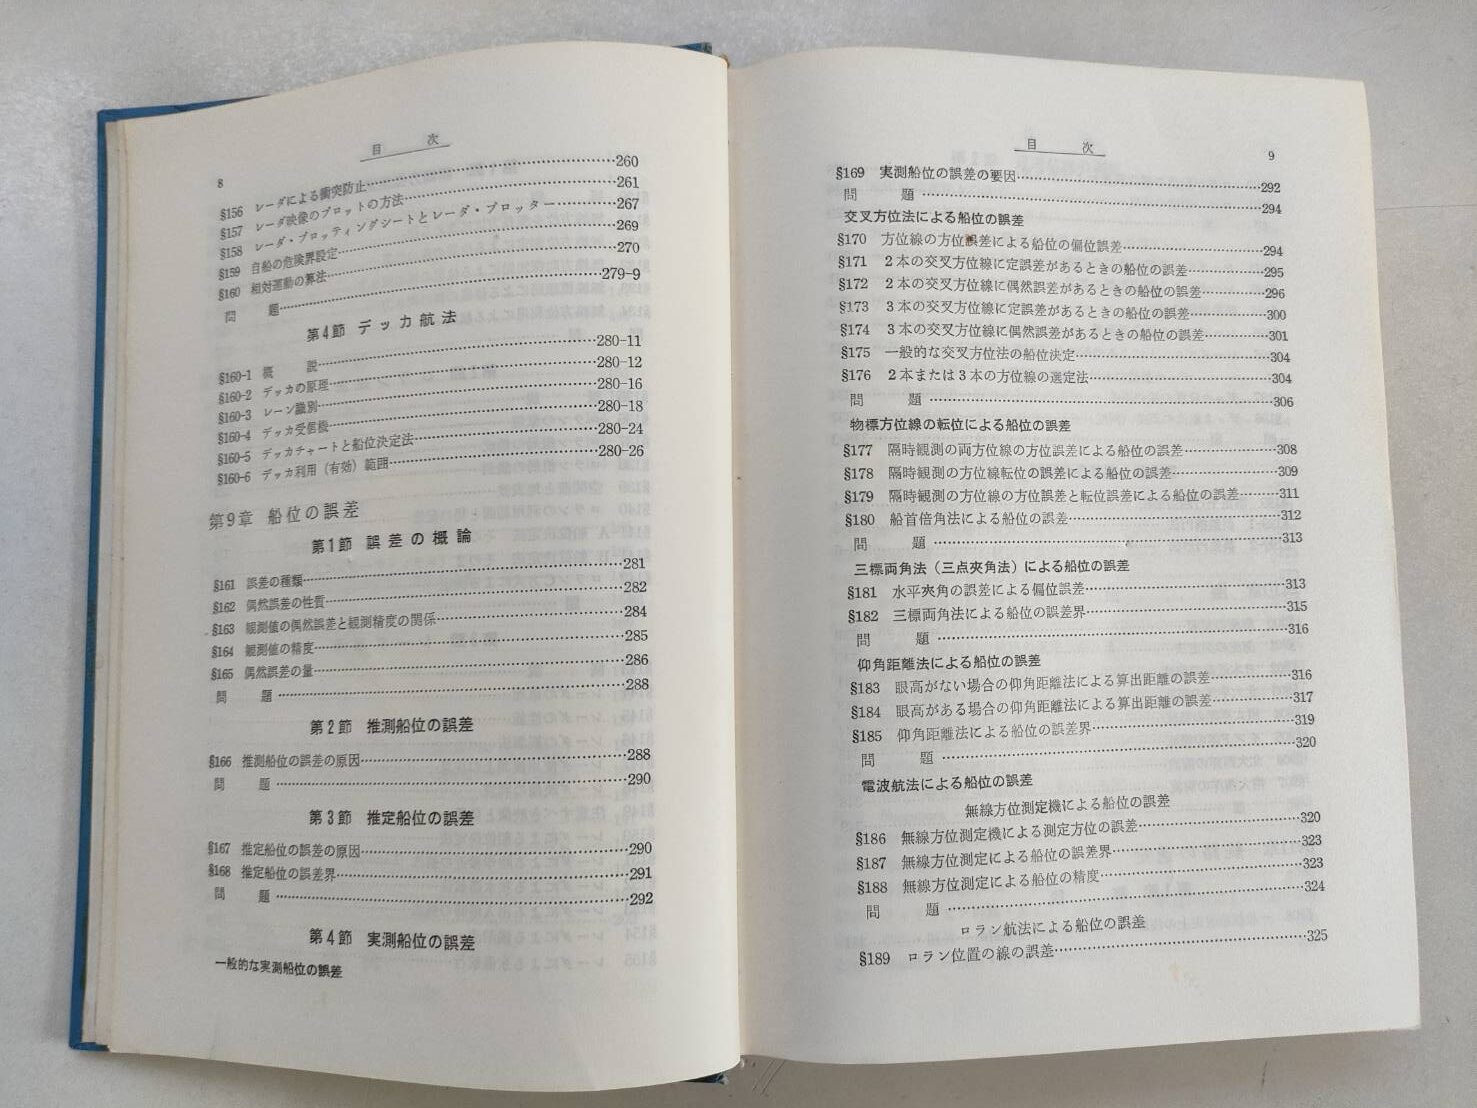 8
目　　次
§156　レーダによる衝突防止……260
§157　レーダ映像のプロットの方法……261
§158　レーダ・プロッティングシートとレーダ・プロッター……267
§159　自船の危険界設定……269
§160　相対運動の算法……270
問　　題……279-9
第4節　デッカ航法
§160-1　概　　説……280-11
§160-2　デッカの原理……280-12
§160-3　レーン識別……280-16
§160-4　デッカ受信機……280-18
§160-5　デッカチャートと船位決定法……280-24
§160-6　デッカ利用（有効）範囲……280-26
第9章　船位の誤差
第1節　誤差の概論
§161　誤差の種類……281
§162　偶然誤差の性質……282
§163　観測値の偶然誤差と観測精度の関係……284
§164　観測値の精度……285
§165　偶然誤差の量……286
問　　題……288
第2節　推測船位の誤差
§166　推測船位の誤差の原因……288
問　　題……290
第3節　推定船位の誤差
§167　推定船位の誤差の原因……290
§168　推定船位の誤差界……291
問　　題……292
第4節　実測船位の誤差
一般的な実測船位の誤差
目　　次
9
§169　実測船位の誤差の要因……292
問　　題……294
交叉方位法による船位の誤差
§170　方位線の方位誤差による船位の偏位誤差……294
§171　2本の交叉方位線に定誤差があるときの船位の誤差……295
§172　2本の交叉方位線に偶然誤差があるときの船位の誤差……296
§173　3本の交叉方位線に定誤差があるときの船位の誤差……300
§174　3本の交叉方位線に偶然誤差があるときの船位の誤差……301
§175　一般的な交叉方位法の船位決定……304
§176　2本または3本の方位線の選定法……304
問　　題……306
物標方位線の転位による船位の誤差
§177　隔時観測の両方位線の方位誤差による船位の誤差……308
§178　隔時観測の方位線転位の誤差による船位の誤差……309
§179　隔時観測の方位線の方位誤差と転位誤差による船位の誤差……311
§180　船首倍角法による船位の誤差……312
問　　題……313
三標両角法（三点夾角法）による船位の誤差
§181　水平夾角の誤差による偏位誤差……313
§182　三標両角法による船位の誤差界……315
問　　題……316
仰角距離法による船位の誤差
§183　眼高がない場合の仰角距離法による算出距離の誤差……316
§184　眼高がある場合の仰角距離法による算出距離の誤差……317
§185　仰角距離法による船位の誤差界……319
問　　題……320
電波航法による船位の誤差
無線方位測定機による船位の誤差
§186　無線方位測定機による測定方位の誤差……320
§187　無線方位測定による船位の誤差界……323
§188　無線方位測定による船位の精度……323
問　　題……324
ロラン航法による船位の誤差
§189　ロラン位置の線の誤差……325